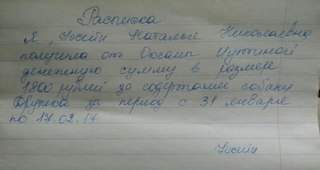 Расписка
Я, Наталья Николаевна
получила от Оксаны
денежную сумму в размере
1800 рублей за содержание собаки
за период с 31 января
по 17.02.17